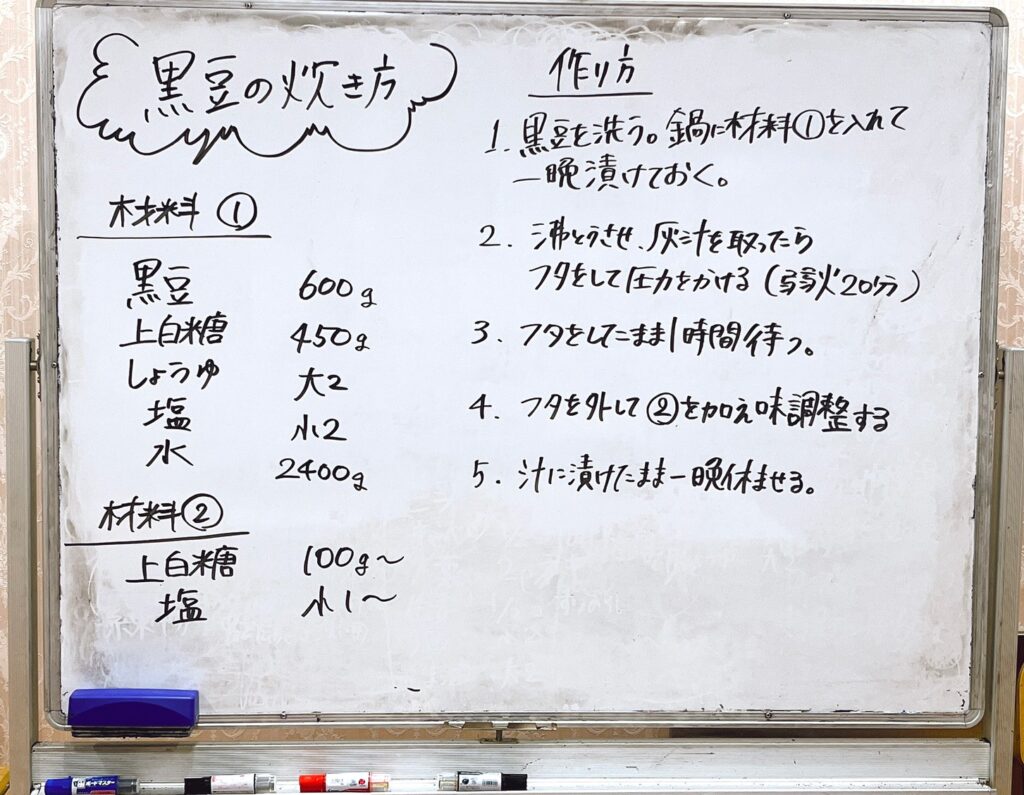 黒豆の炊き方
材料 ①
黒豆 600g
上白糖 450g
しょうゆ 大2
塩 小2
水 2400g
材料②
上白糖 100g〜
塩 小1〜
作り方
1. 黒豆を洗う。鍋に材料①を入れて
一晩漬けておく。
2. 沸とうさせ、灰汁を取ったら
フタをして圧力をかける(弱火20分)
3. フタをしたまま1時間待つ。
4. フタを外して②を加え味調整する
5. 汁に漬けたまま一晩休ませる。
ボードマスター